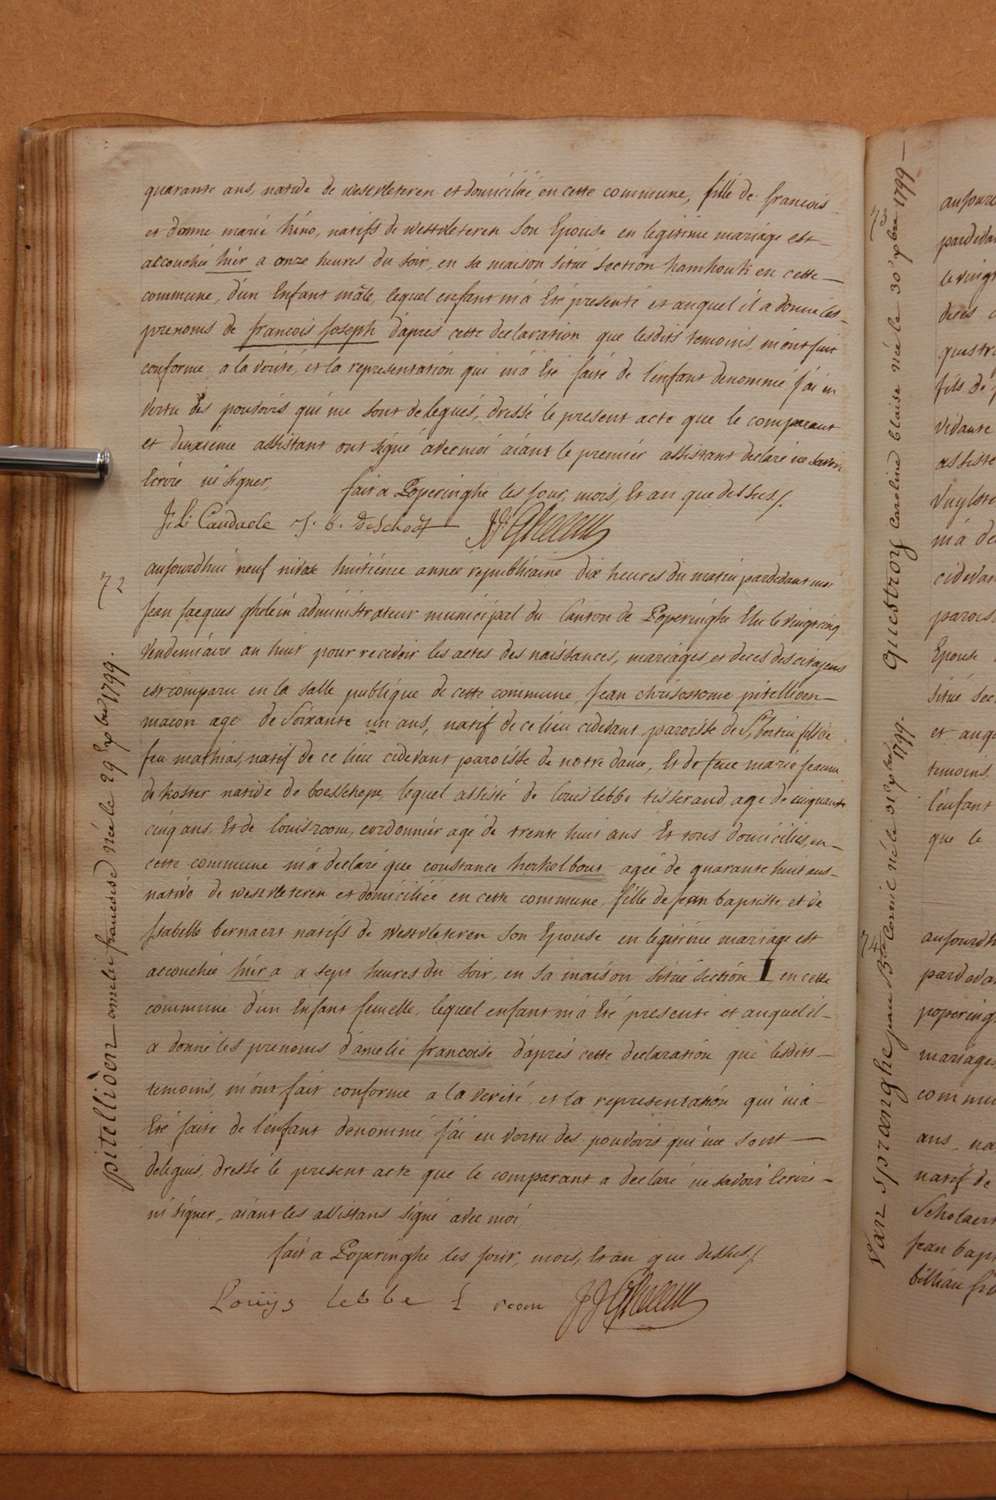 quarante ans, native de westvleteren et domiciliée en cette commune, fille de francois
et donne marie hino, natifs de westvleteren son Epouse en legitime mariage est
accouchée hier a onze heures du soir, en sa maison situé section hamhouk en cette
commune, d'un Enfant mâle, lequel enfant m'a Eté presenté et auquel il a donné les
prenoms de francois Joseph d'après cette declaration que lesdits temoins, m'ont fait
conforme a la verité, et la representation qui m'a Eté faite de l'enfant denommé j'ai en
vertu des pouvoirs qui me sont delegués, dressé le present acte que le comparant
et deuxieme assistant ont signé avec moi aiant le premier assistant declaré ne savoir
Ecrire ni signer,
fait a Poperinghe les Jour, mois, Et an que dessus /.
J: b: Deschodt
72
aujourdhui neuf nivose huitieme annee republicaine dix heures du matin pardevant moi
Jean Jacques ghelein administrateur municipal du Canton de Poperinghe Elu le vingt cinq
Vendemiaire an huit pour recevoir les actes des naissances, mariages, et deces des citoyens
est comparu en la salle publique de cette commune Jean chrisostome pitellioen
macon agé de soixante un ans, natif de ce lieu cidevant paroisse de St bertin fils de
feu mathias, natif de ce lieu cidevant paroisse de notre dame, Et de feue marie jeanne
de koster native de boeschepe, lequel assisté de louis lebbe tisserand, agé de cinquante
cinq ans, Et de louis room, cordonnier agé de trente huit ans Et tous domicilies, en
cette commune m'a declaré que constance herkelbout agée de quarante huit ans
native de westvleteren et domiciliée en cette commune, fille de Jean baptiste et de
Isabelle bernaert natifs de westvleteren son Epouse en legitime mariage est
accouchée hier a a sept heures du soir, en sa maison située section I en cette
commune d'un Enfant femelle, lequel enfant m'a Eté presenté et auquel il
a donné les prenoms d'amelie francoise d'après cette declaration que lesdits
temoins, m'ont fait conforme a la verité, et la representation qui m'a
Eté faite de l'enfant denommé j'ai en vertu des pouvoirs qui me sont
delegués, dressé le present acte que le comparant a declaré ne savoir Ecrire
ni signer, aiant les assistans signé avec moi
fait a Poperinghe les Jour, mois, Et an que dessus /.
Louijs lebbe L room
pitellioen amelie francoise Née le 29 xbre 1799.
73
Questroy Caroline blaise née le 30 xbre 1799
74
Van Spranghe jean Bte Née le 31 xbre 1799.
aujourd
pardevan
le vingt
deces
quatr
fils de
assist
m'a de
cidevan
paroiss
Epouse
situé sec
et auqu
temoins,
l'enfant
que le
aujourdh
pardevan
poperingh
mariages
commun
ans, na
natif de
Jean bap